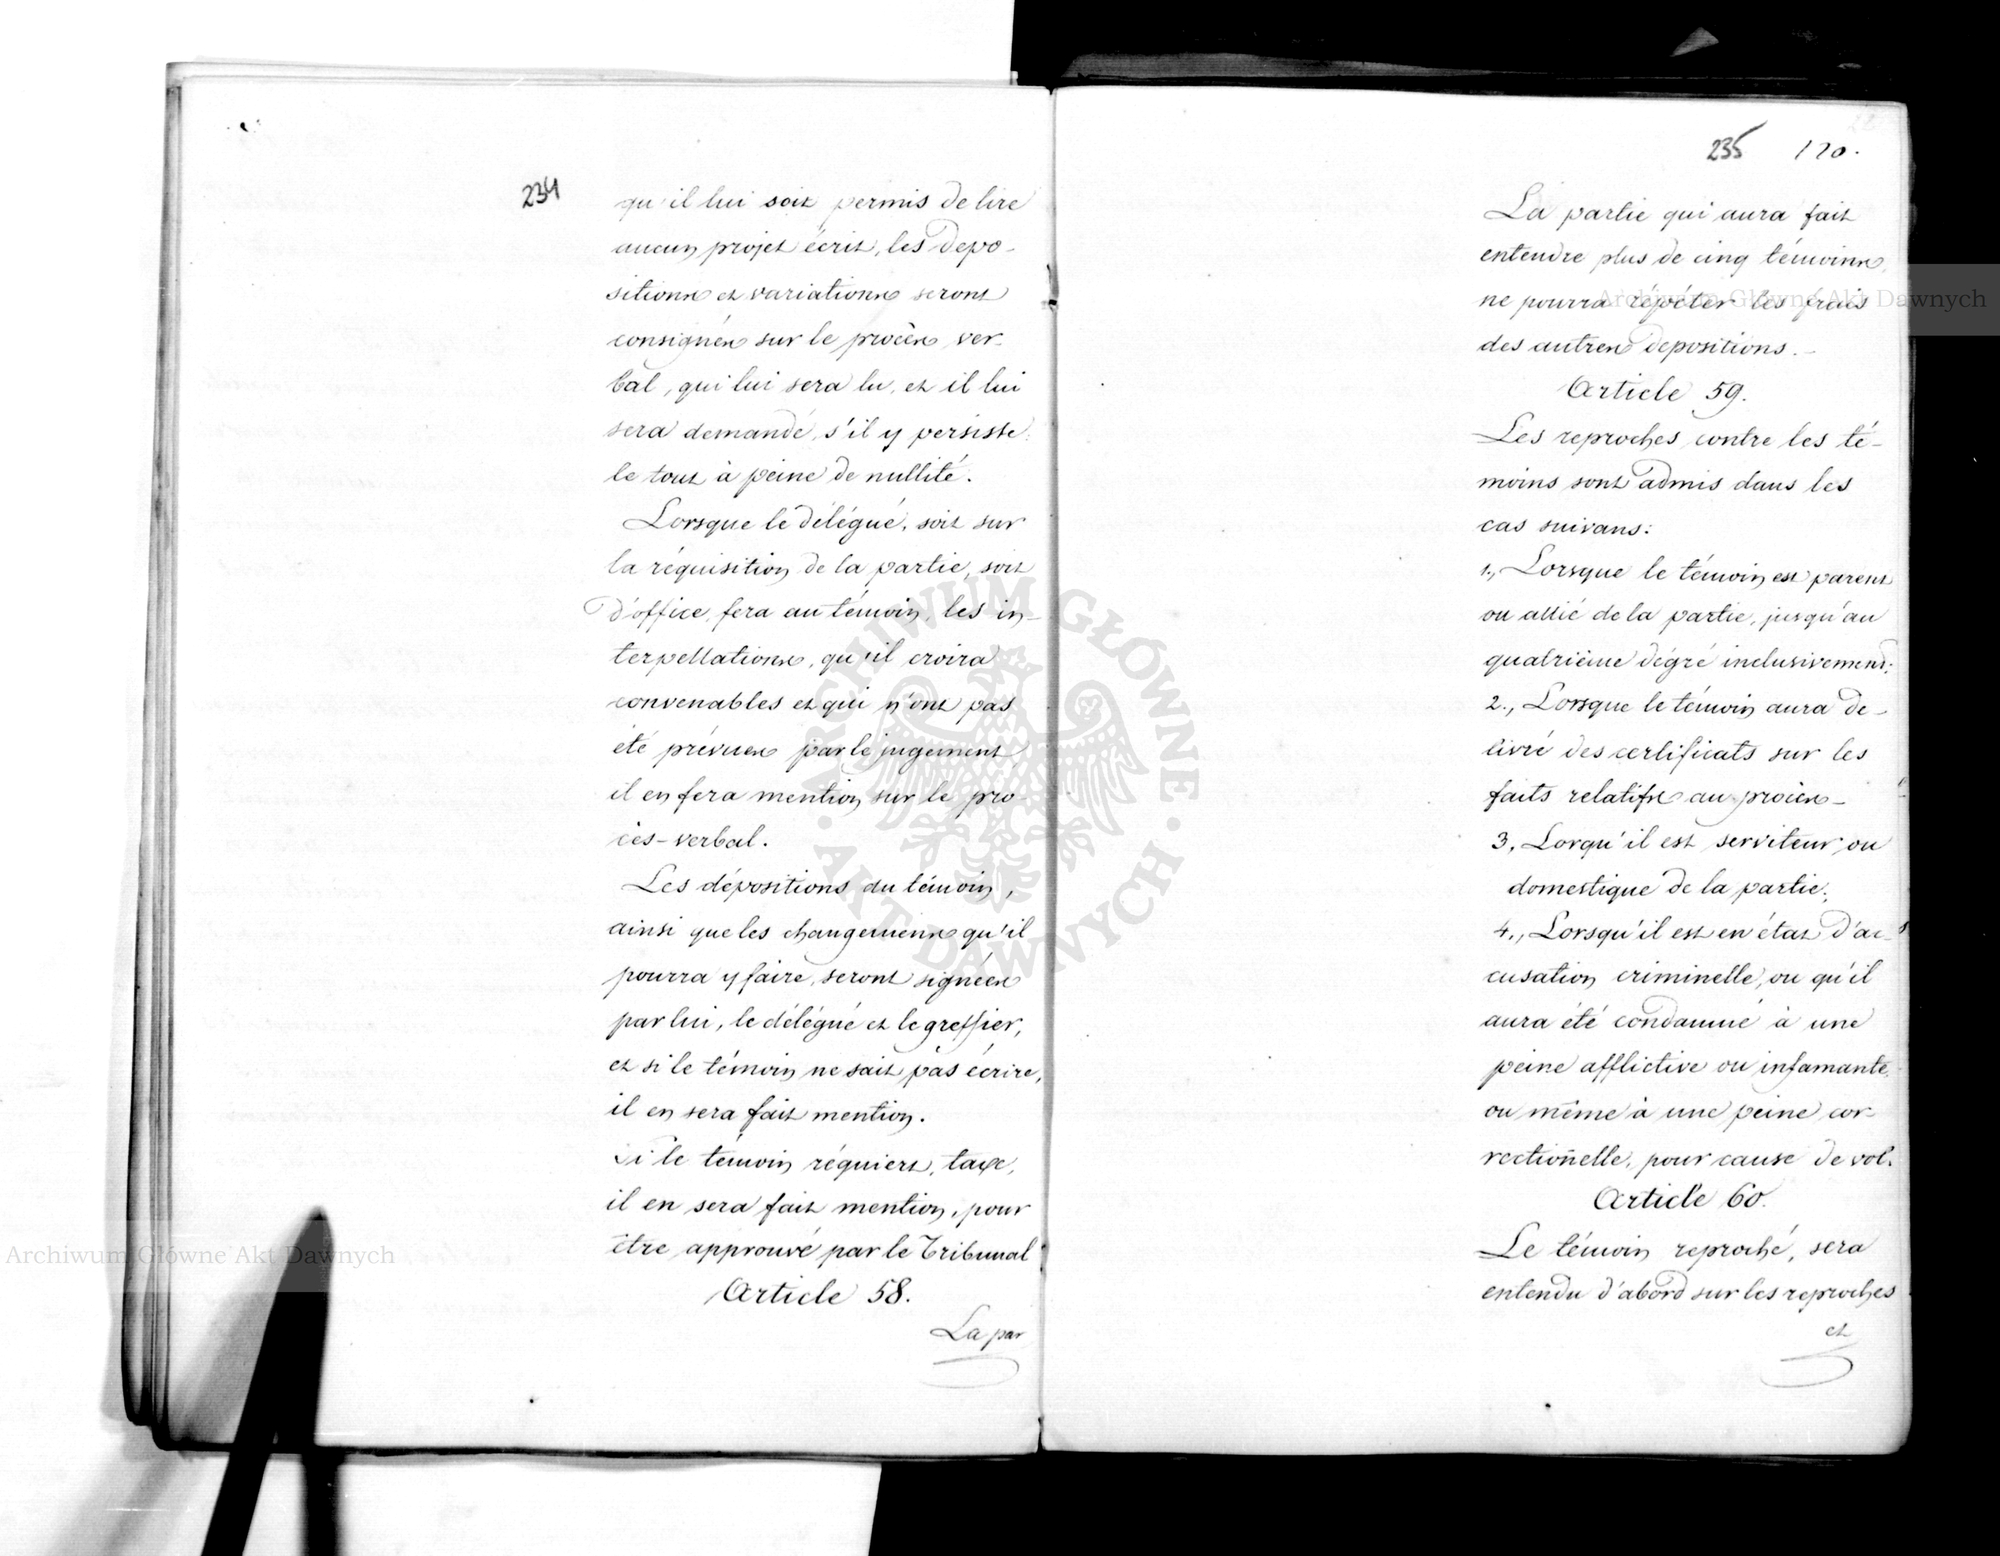 234
qu'il lui soit permis de lire
aucun projet écrit, les depo-
sitions et variations seront
consignés sur le procès ver-
bal, qui lui sera lu, et il lui
sera demandé, s'il y persiste;
le tout à peine de nullité.
Lorsque le délégué, soit sur
la réquisition de la partie, soit
d'office, fera au témoin, les in-
terpellations, qu'il croira
convenables et qui n'ont pas
été prévues par le jugement,
il en fera mention sur le pro
cès-verbal.
Les dépositions du témoin,
ainsi que les changemens qu'il
pourra y faire, seront signées
par lui, le délégué et le greffier,
et si le témoin ne sait pas écrire,
il en sera fait mention.
Si le témoin réquiert, taxe,
il en sera fait mention, pour
être approuvé par le Tribunal
Article 58.
La par
235 120.
La partie qui aura fait
entendre plus de cinq témoins,
ne pourra répéter les frais
des autres depositions.-
Article 59.
Les reproches contre les té-
moins sont admis dans les
cas suivans:
1., Lorsque le témoin est parent
ou allié de la partie, jusqu'au
quatrième dégré inclusivement;
2., Lorsque le témoin aura de-
livré des certificats sur les
faits relatifs au procès-
3, Lorqu'il est serviteur ou
domestique de la partie;
4., Lorsqu'il est en état d'ac-
cusation criminelle, ou qu'il
aura été condamné à une
peine afflictive ou infamante,
ou même à une peine cor-
rectionelle, pour cause de vol.
Article 60.
Le témoin reproché, sera
entendu d'abord sur les reproches
et
Archiwum Główne Akt Dawnych
Archiwum Główne Akt Dawnych
ARCHIWUM GŁÓWNE · AKT DAWNYCH ·